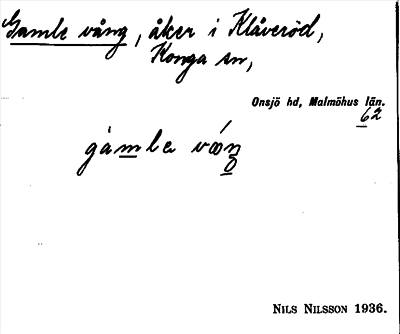 Gamle vång, åker i Klåveröd,
Konga sn,
Onsjö hd, Malmöhus län.
62
gàmle vóŋ
NILS NILSSON 1936.